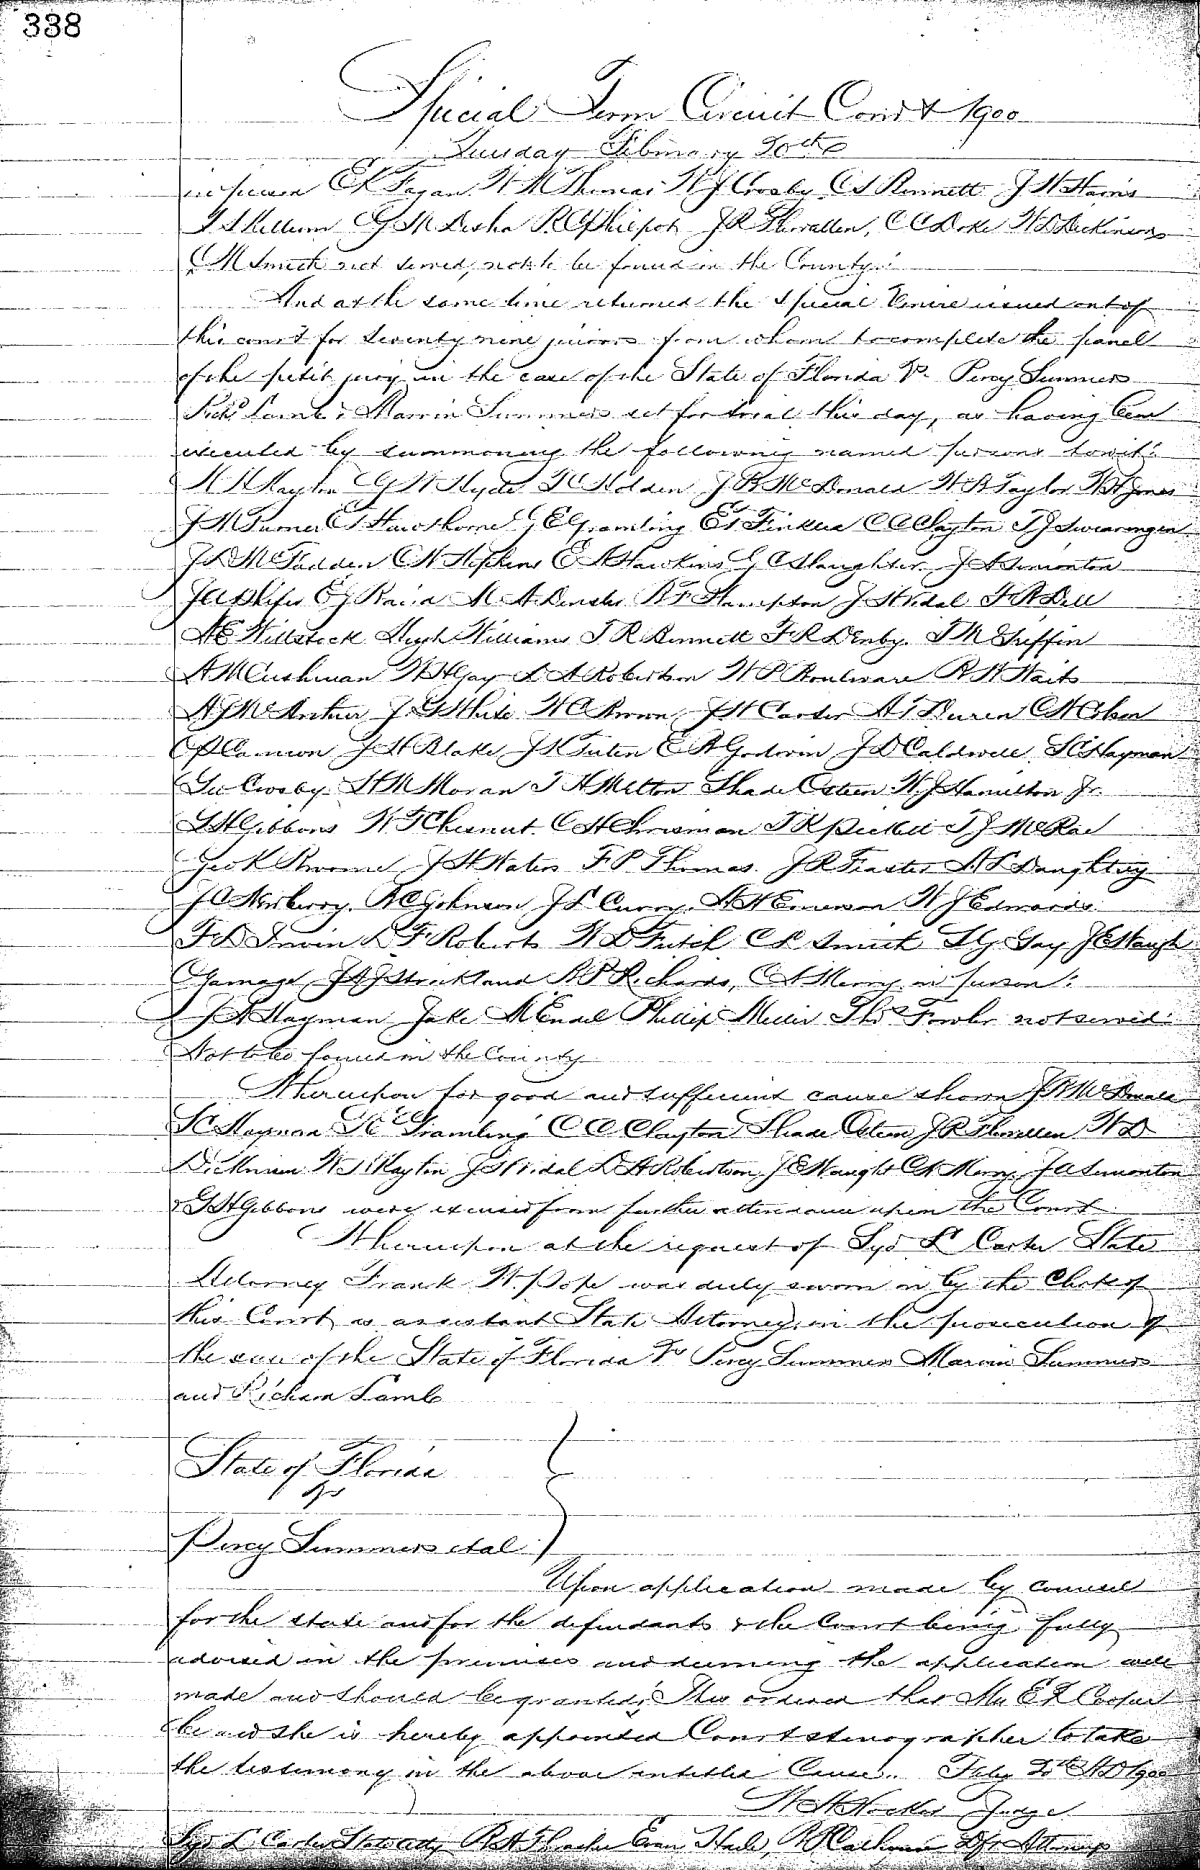 338
Special Term Circuit Court 1900
Tuesday February 20th
in person E L Fagan W M Thomas W J Crosby C S Bennett J W Harris
G M Desha R C Philpot J R Flewellen, C C Doke W D Dickinson
C M Smith not served, not to be found in the County.
And at the same time returned the Special Venire issued out of
this court for seventy nine jurors from whom to complete the panel
of the petit jury in the case of the State of Florida Vs. Percy Summers
Richd Lamb & Marvin Summers set for trial this day, as having been
executed by summoning the following named persons towit:
G W Hyde H C Holden J B McDonald W B Taylor W H Jones
J M Turner E S Hawthorne, E Gramling C C Clayton T J Swearingen
J D McFadden C W Hopkins E A Hawkins G C Slaughter J A Simonton
J C Phifer R F Hampton J H Vidal F R Dell
Hugh Williams J R Bennett F R Denby. J M Griffin
A M Cushman W H Gay L A Robertson W P Boulware R W Waits
A J McArthur J G White W C Brown J W Carter
Cannon J H Blake J K Tuten E A Godwin J D Caldwell S C Hayman
Crosby H M Moran J H Melton Shade Osteen W J Hamilton Jr.
G H Gibbons W F Chesnut C H Chrisman T J McRae
Geo K Broome J H Waters F P Thomas. J R Feaster
R C Johnson J L Curry. W J Edwards.
F D Irwin L F Roberts W D Futch C R Smith S G Gay J E Waugh
Gamage J A J Strickland B P Richards, C A Merry in person.
J A Hayman Jake Phillip Miller Thos Fowler not served
Not to be found in the County
Whereupon for good and sufficient cause shown J B McDonald
S C Hayman Gramling C C Clayton Shade Osteen J R Flewellen W D
Dickinson J H Vidal L A Robertson J E Waugh C A Merry J A Simonton
& G H Gibbons were excused from further attendance upon the Court.
Whereupon at the request of Syd L Carter State
Attorney Frank W. Pope was duly sworn in by the Clerk of
this Court as assistant State Attorney in the prosecution of
the case of the State of Florida Vs Percy Summers Marvin Summers
and Richard Lamb
State of Florida
Vs
Percy Summers et al
Upon application made by counsel
for the state and for the defendants & the Court being fully
advised in the premises and deeming the application well
made and should be granted: It is ordered that
be and she is hereby appointed Court stenographer to take
the testimony in the above entitled Cause. Feby 20th AD 1900
W A Hocker Judge
Syd L Carter State Atty R A Thacker Evans Haile,